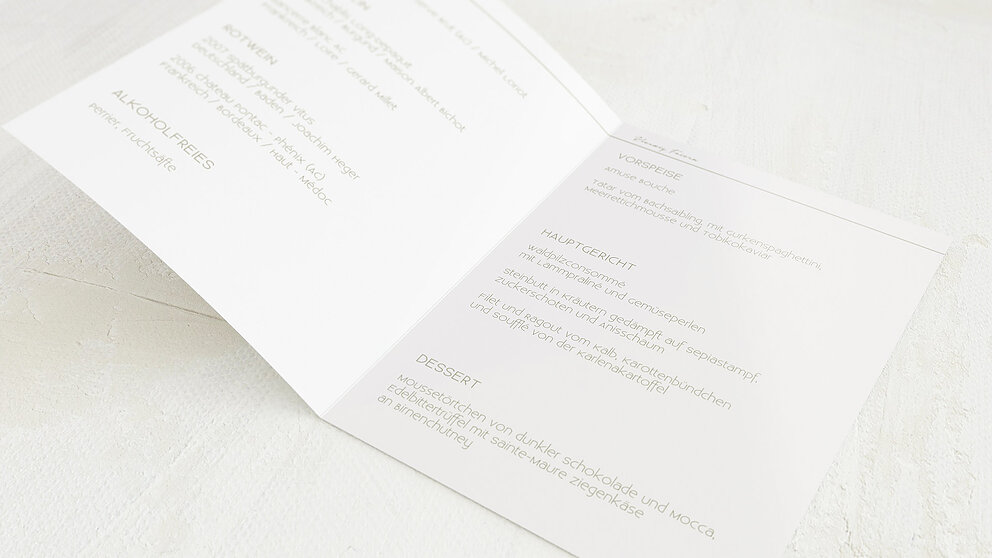 Michel Loriot
Maison Albert Bichot
Blanc AC
Frankreich / Loire / Gerard Millet
ROTWEIN
2007 Spätburgunder Vitus
Deutschland / Baden / Joachim Heger
2006 Chateau Pontac - Phénix (AC)
Frankreich / Bordeaux / Haut - Médoc
ALKOHOLFREIES
Perrier, Fruchtsäfte
VORSPEISE
Amuse Bouche
Tatar vom Bachsaibling, mit Gurkenspaghettini,
Meerrettichmousse und Tobikokaviar
HAUPTGERICHT
Waldpilzconsommé
mit Lammpraliné und Gemüseperlen
Steinbutt in Kräutern gedämpft auf Sepiastampf,
Zuckerschoten und Anisschaum
Filet und Ragout vom Kalb, Karottenbündchen
und Soufflé von der Karlenakartoffel
DESSERT
Moussetörtchen von dunkler Schokolade und Mocca,
Edelbittertrüffel mit Sainte-Maure Ziegenkäse
an Birnenchutney